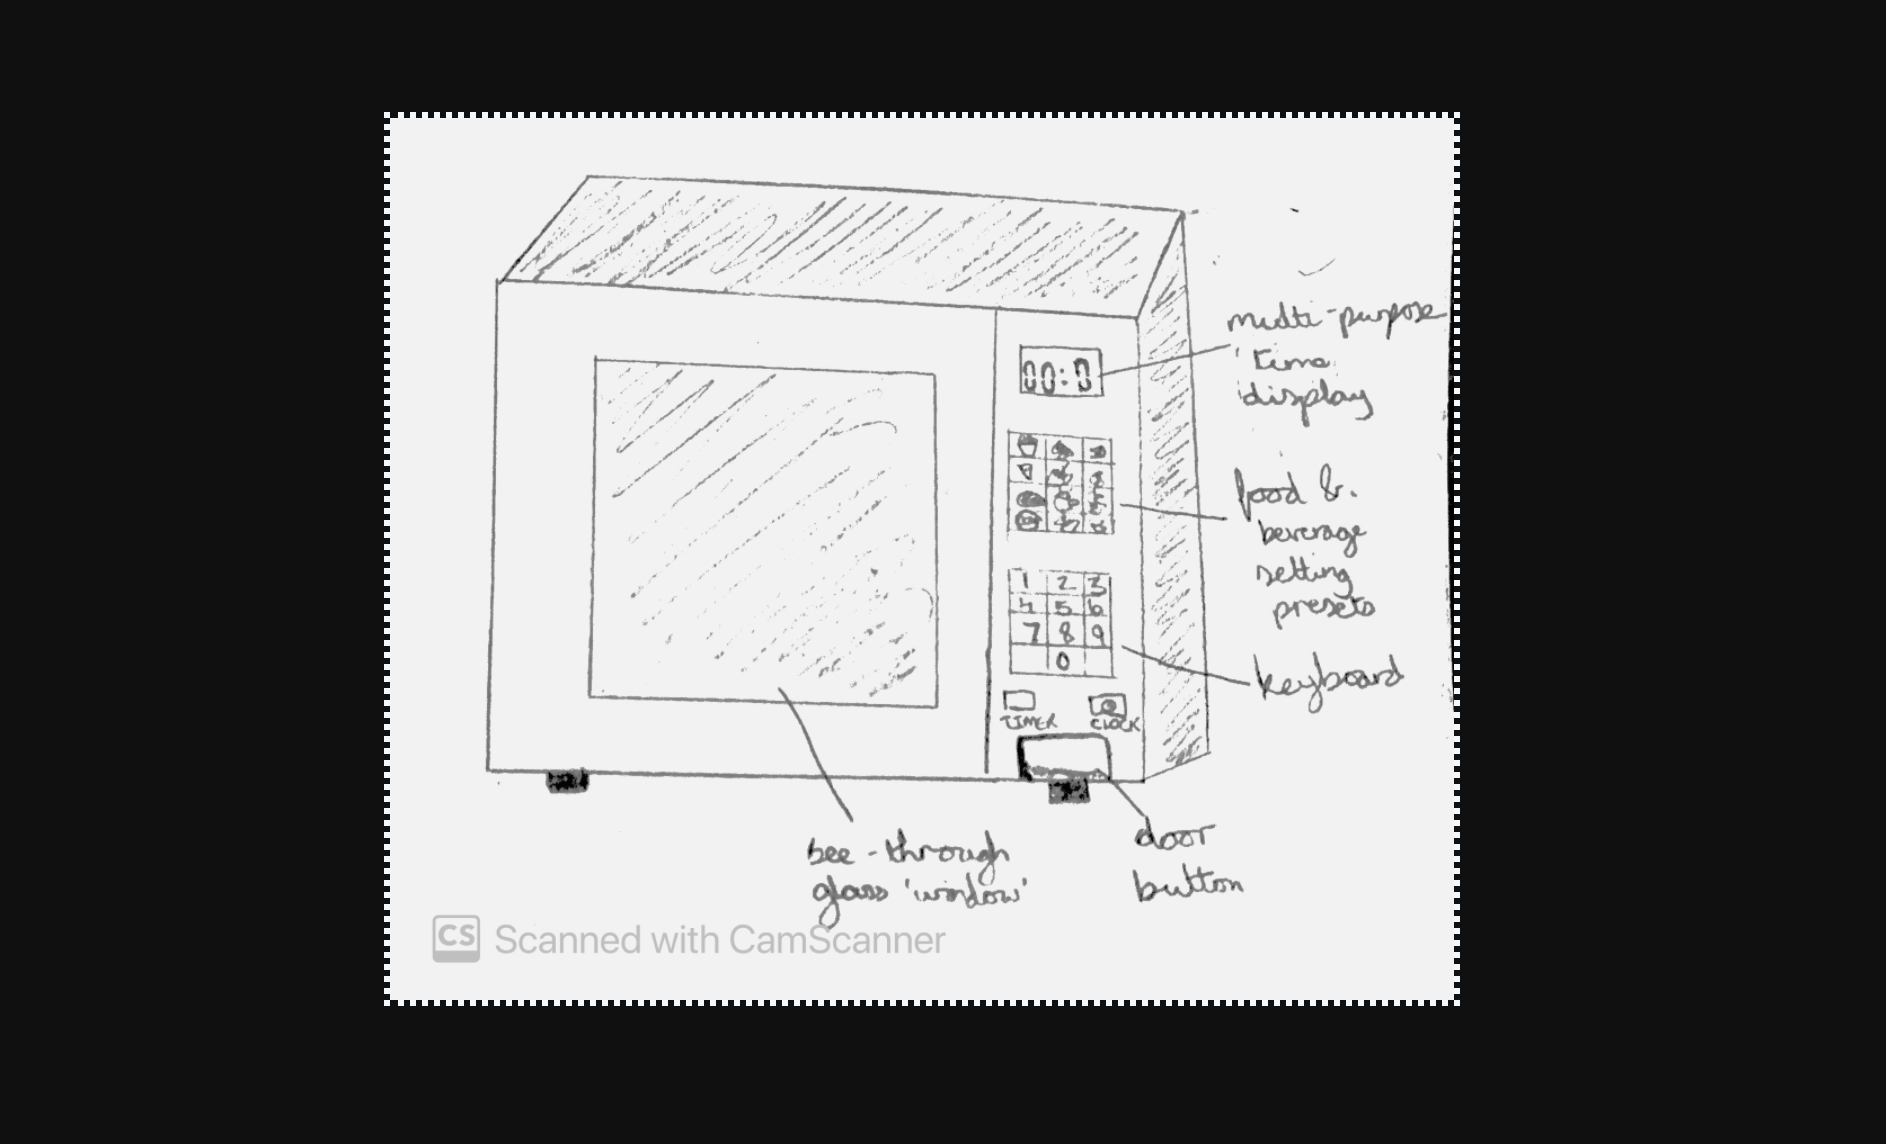 00:0
multi-purpose
time
display
food &
beverage
setting
presets
1 2 3
4 5 6
7 8 9
0
keyboard
TIMER CLOCK
see-through
glass 'window'
door
button
CS Scanned with CamScanner